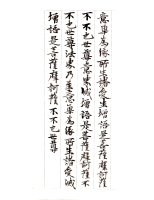 意觸為緣所生諸受生增語是菩薩摩訶薩
不不也世尊滅增語是菩薩摩訶薩不
不也世尊乃至意觸為緣所生諸受滅
增語是菩薩摩訶薩不不也世尊